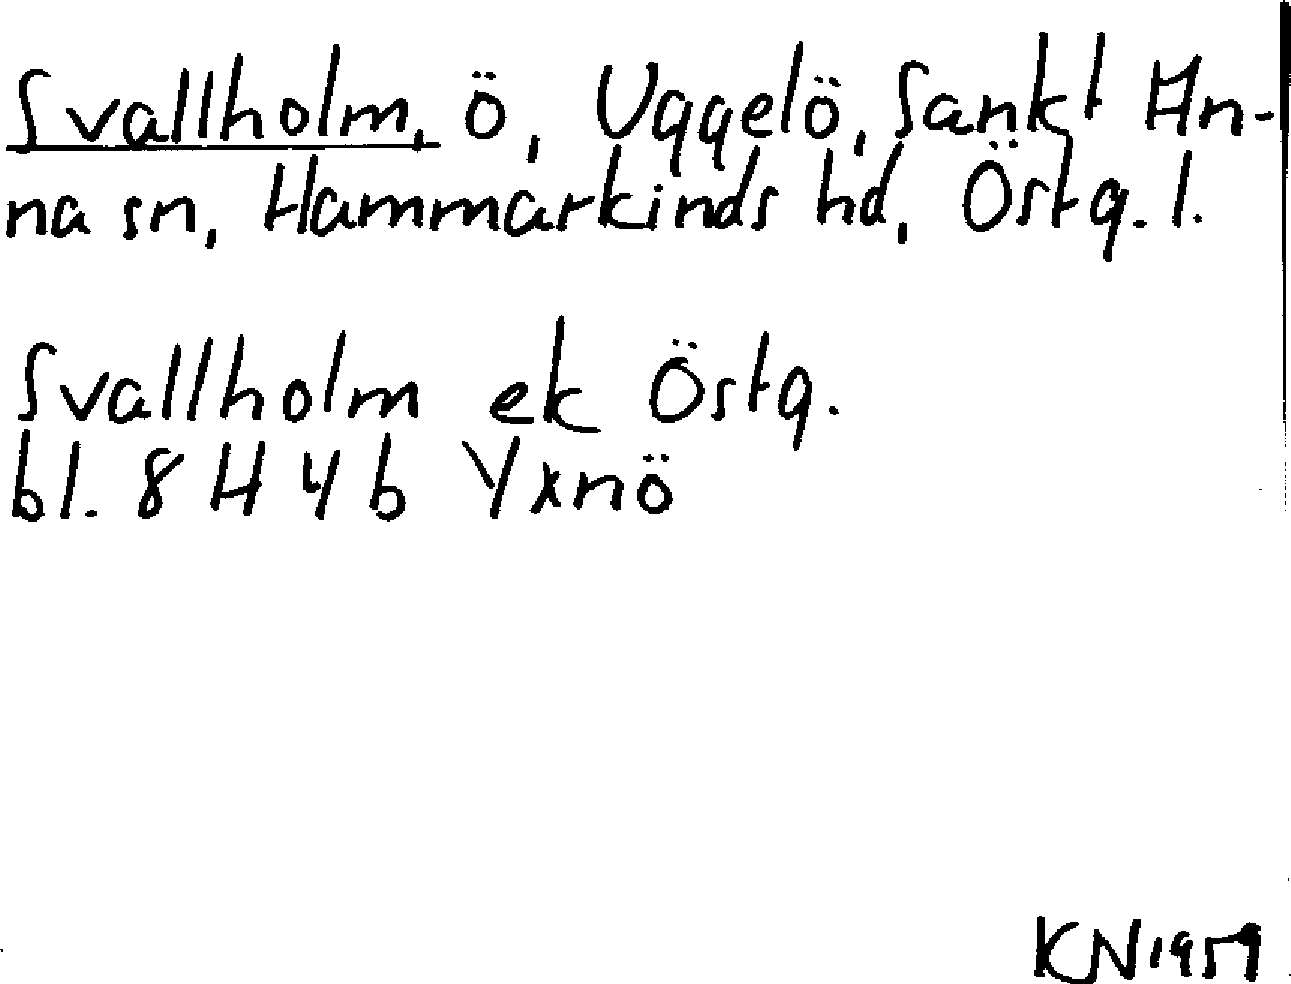 Svallholm, ö, Uggelö, Sankt An-
na sn, Hammarkinds hd, Östg. l.
Svallholm ek Östg.
bl. 8 H 4 b Yxnö
KN 1959